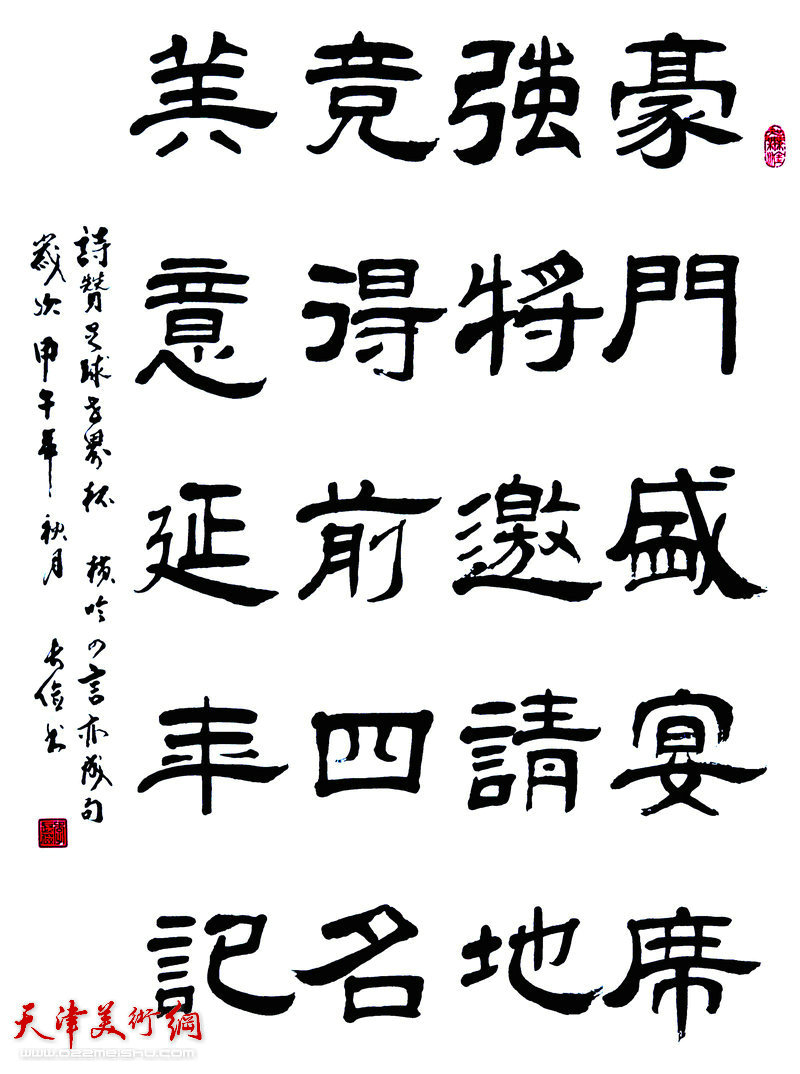 豪門盛宴席
強將邀請地
竞得前四名
美意延年記
詩赞足球世界杯 横吟言亦成句
歲次甲午年秋月 书
天津美術網
www.022meishu.com